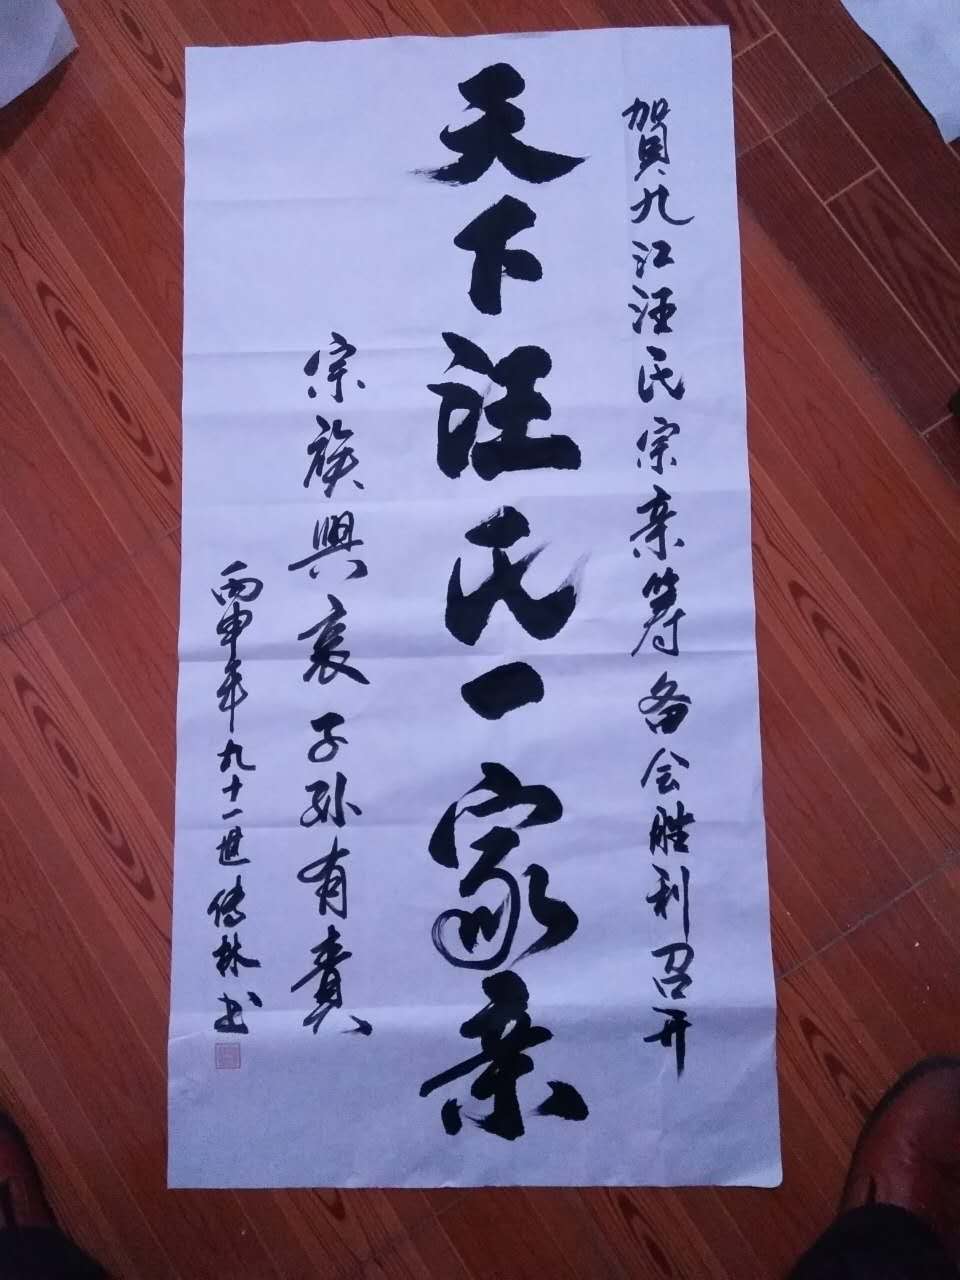 賀九江汪氏宗亲筹备会胜利召开
天下汪氏一家亲
宗族興衰子孙有責
丙申年九十一世传林书